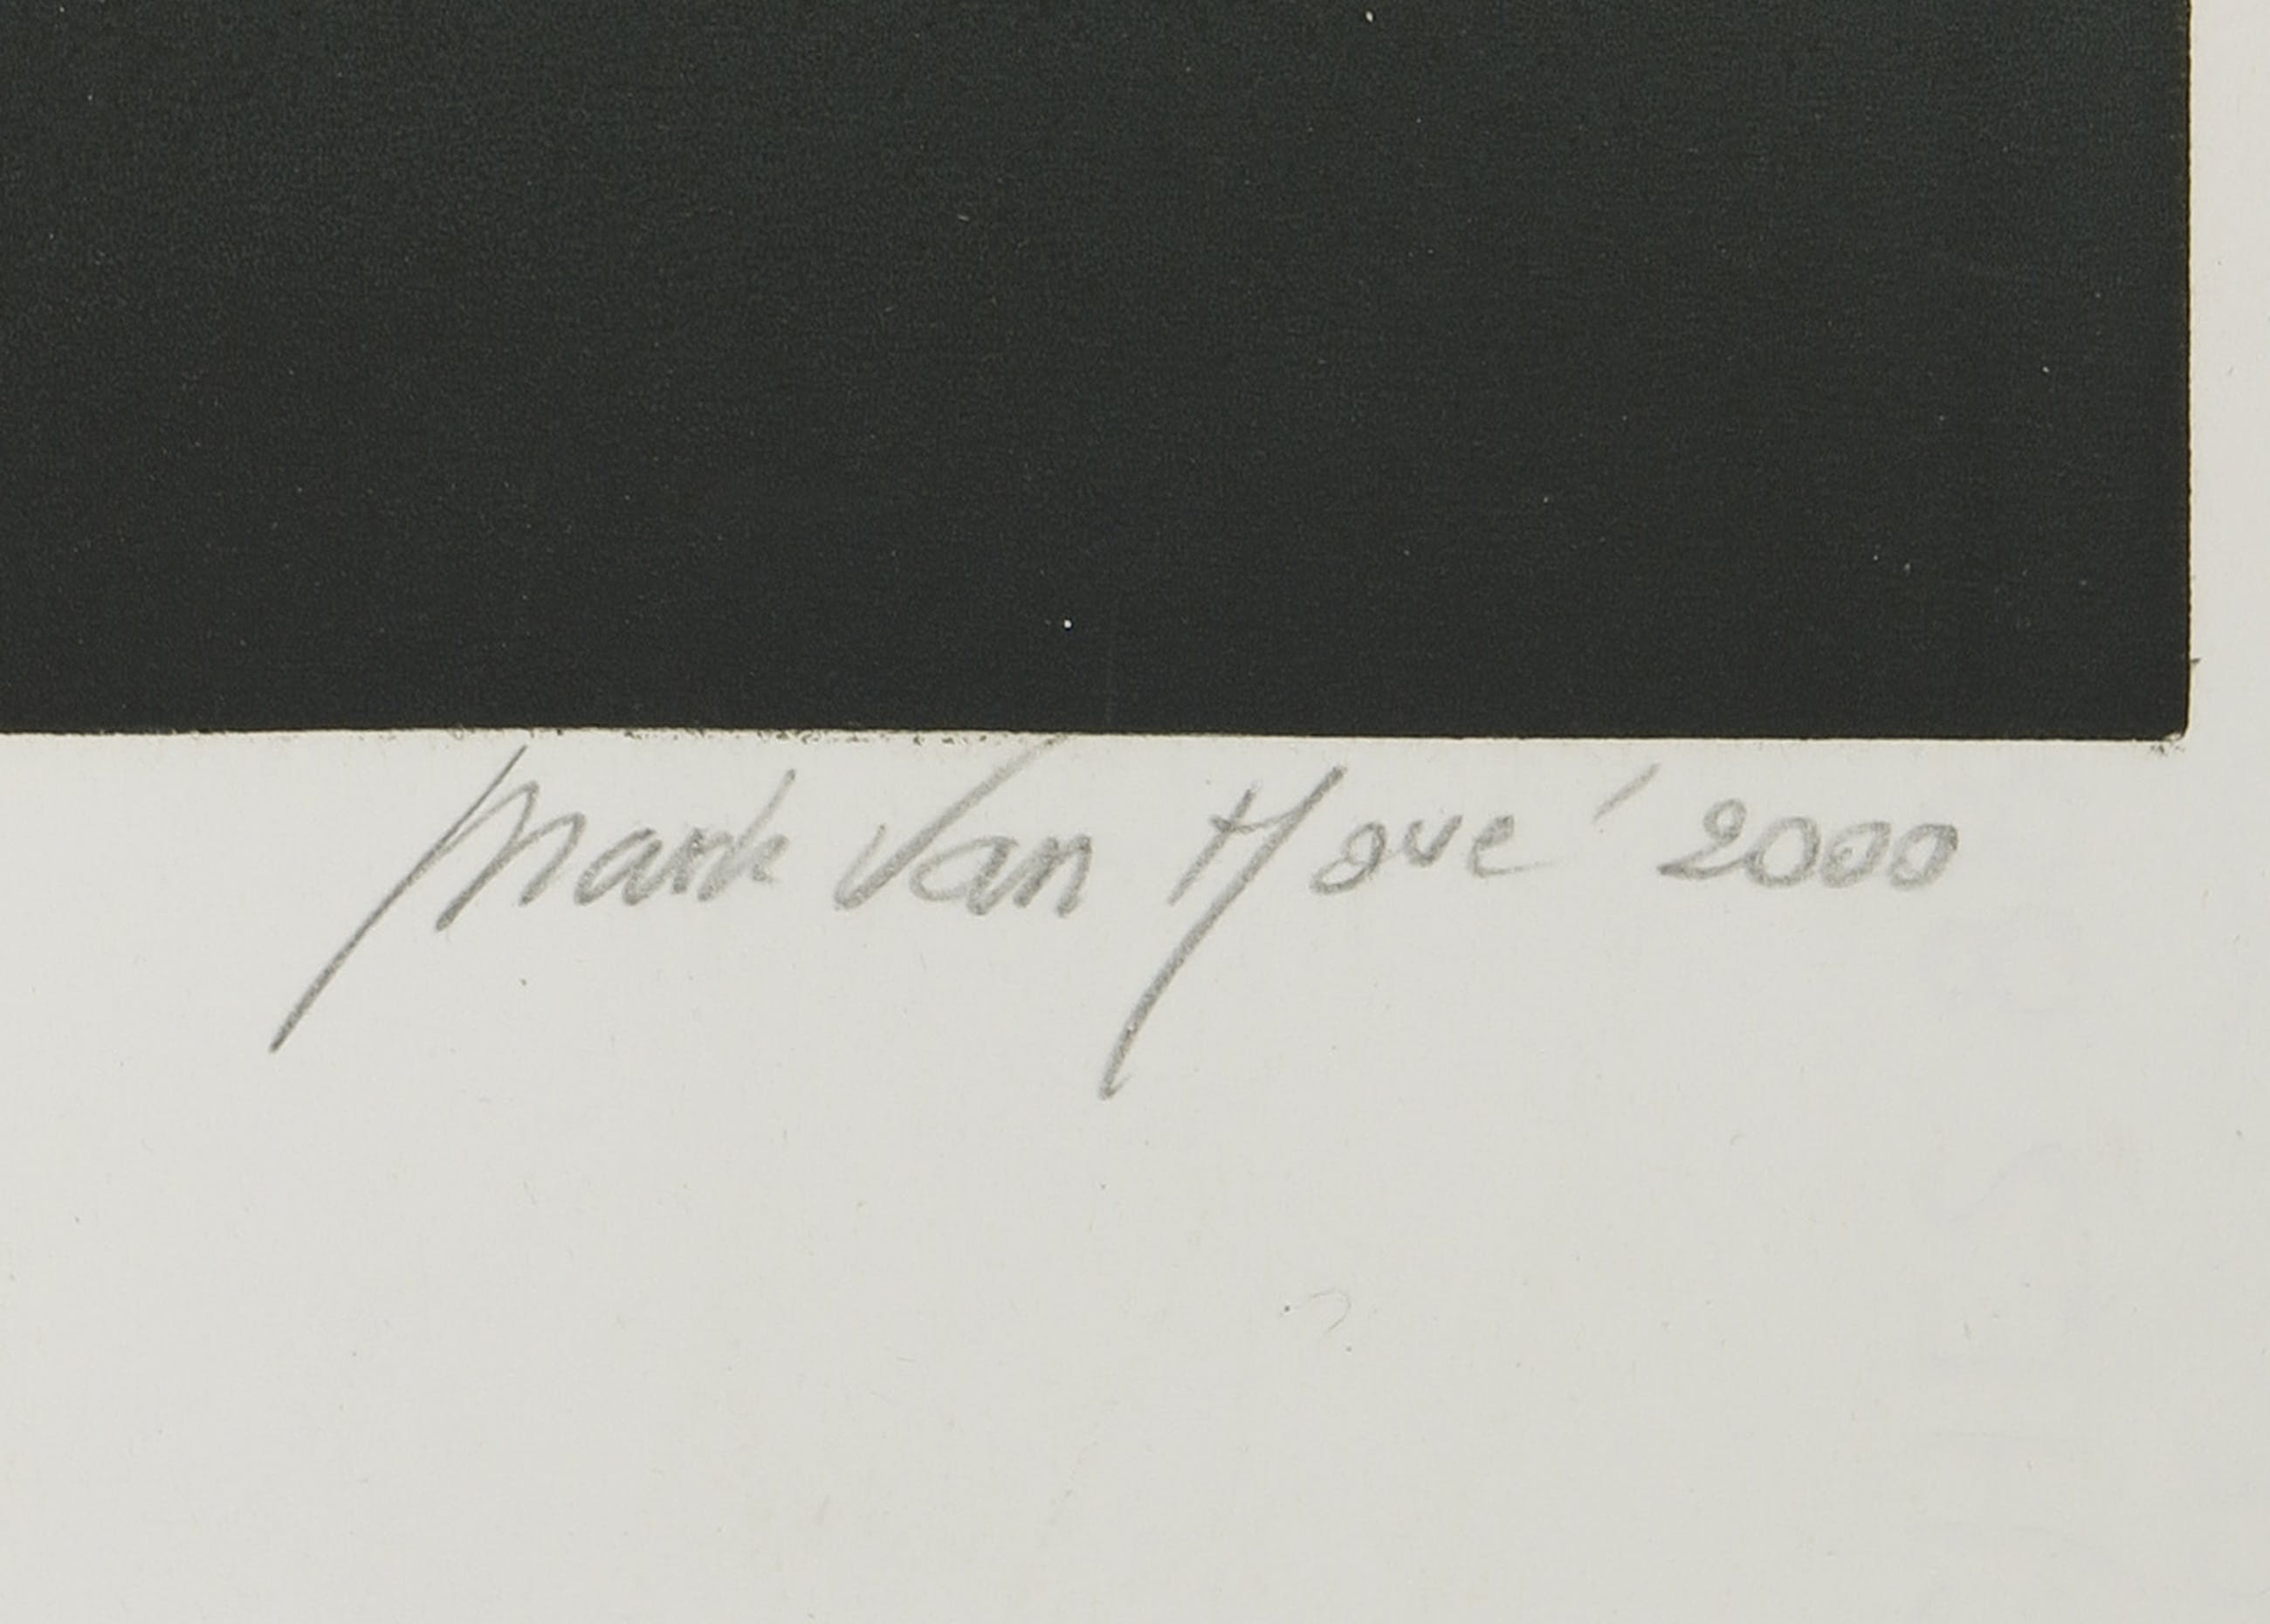 Mark Van Hove '2000